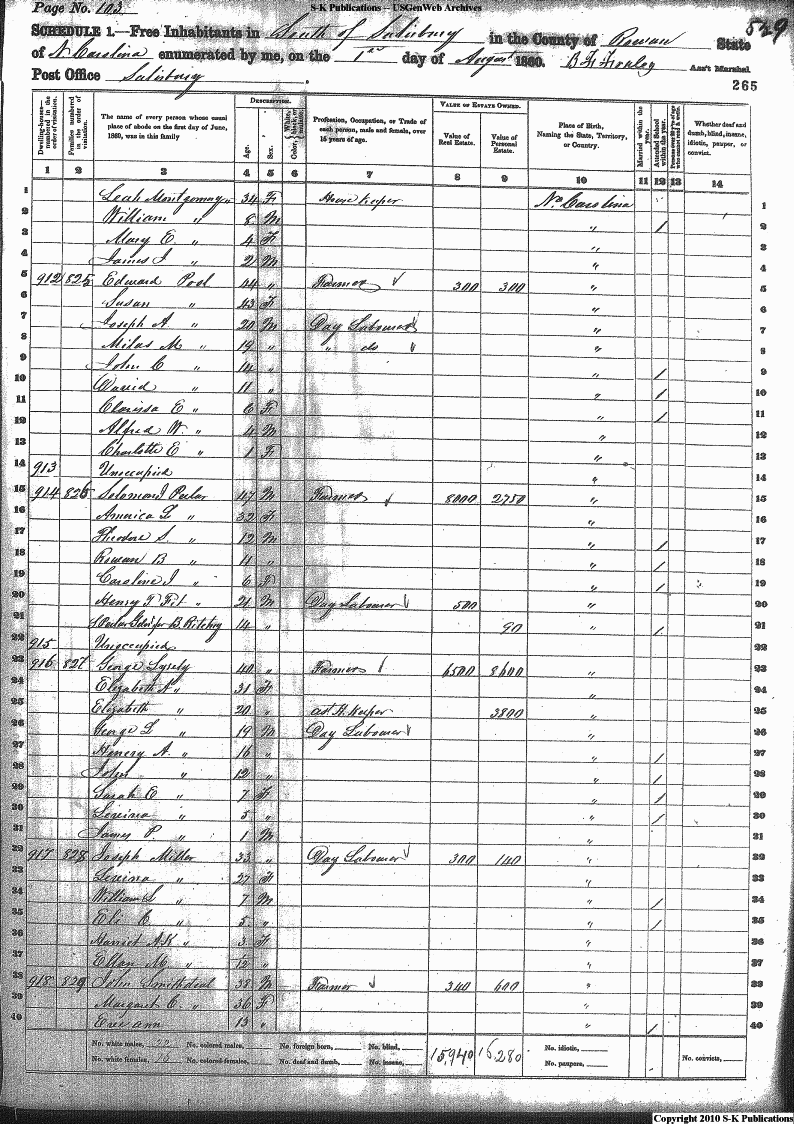 S-K Publications -- USGenWeb Archives
Page No. 103
529
SCHEDULE 1.—Free Inhabitants in South of Salisbury in the County of Rowan State
of N Carolina enumerated by me, on the 1st day of August 1860. Ass't Marshal.
Post Office Salisbury
265
Dwelling-houses—numbered in the order of visitation.
Families numbered in the order of visitation.
The name of every person whose usual place of abode on the first day of June, 1860, was in this family
DESCRIPTION.
Age.
Sex.
Profession, Occupation, or Trade of each person, male and female, over 15 years of age.
VALUE OF ESTATE OWNED.
Value of Real Estate.
Value of Personal Estate.
Place of Birth, Naming the State, Territory, or Country.
Married within the year.
Attended School within the year.
Whether deaf and dumb, blind, insane, idiotic, pauper, or convict.
1 2 3 4 5 6 7 8 9 10 11 12 13 14
1 Leah Montgomery 34 F House Keeper No Carolina 1
2 William " 8 M " / 2
3 Mary E " 4 F " 3
4 James I " 2 M " 4
5 912 825 Edward Pool 44 " Farmer 300 300 " 5
6 Susan " 43 F " 6
7 Joseph A. " 20 M Day Labourer " 7
8 Milas M " 19 " " do " 8
9 John C " 14 " " / 9
10 David " 11 " " / 10
11 Clarissa E " 6 F " / 11
12 Alfred W. " 4 M " 12
13 Charlotte E " 1 F " 13
14 913 Unoccupied " 14
15 914 826 Solomon Peeler 47 M Farmer 8000 2750 " 15
16 America L " 32 F " 16
17 Theodore S. " 12 M " / 17
18 Rowan B " 11 " " / 18
19 Caroline I " 6 F " / 19
20 Henry T " 21 M Day Labourer 500 " 20
21 B Ritchey 14 " 90 " / 21
22 915 Unoccupied 22
23 916 827 George Lyerly 40 " Farmer 6500 8600 " 23
24 Elizabeth A " 31 F " 24
25 Elizabeth " 20 " Keeper 3800 " 25
26 George L " 19 M Day Labourer " 26
27 Henery A. " 16 " " / 27
28 John " 12 " " / 28
29 Sarah E " 7 F " / 29
30 " 5 " " / 30
31 James P. " 1 M " 31
32 917 828 Joseph Miller 33 " Day Labourer 300 140 " 32
33 " 27 F " 33
34 William S " 7 M " / 34
35 Eli C " 5 " " / 35
36 Harriet " 3 F " 36
37 " /12 " " 37
38 918 829 John Smithdeal 38 M Farmer 340 600 " 38
39 Margaret C " 36 F " 39
40 13 " " / 40
No. white males, 22 No. colored males, No. foreign born, No. blind, 15,940 16,280 No. idiotic,
No. white females, 16 No. colored females, No. deaf and dumb, No. insane, No. paupers, No. convicts,
Copyright 2010 S-K Publications